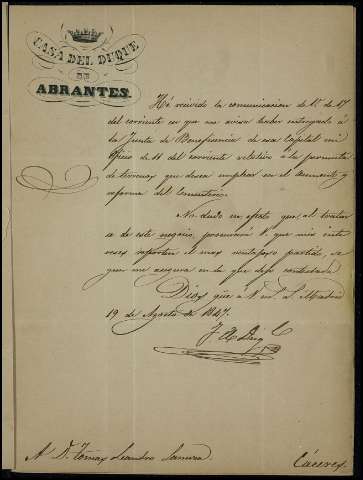 CASA DEL DUQUE
DE
ABRANTES.
Hé recivido la comunicacion de V. de 17
del corriente en que me avisa haber entregado á
la Junta de Beneficencia de esa Capital mi
Oficio de 11 del corriente relativo á la permuta
de terrenos que desea emplear en el aumento y
reforma del Cementerio.
No dudo en efecto que al tratar
se de este negocio, procurará V. que mis inte
reses reporten el mas ventajoso partido, se
gun me asegura en la que dejo contestada
Dios güe á V. m. a. Madrid
19 de Agosto de 1847.
A D. Tomas Leandro
Cáceres.